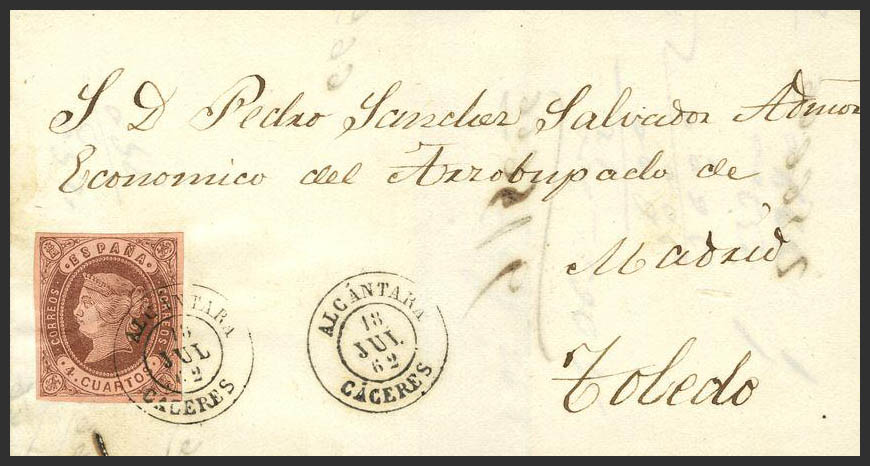 S D Pedro Sanchez Salvador Admor
Economico del Arzobispado de
Madrid
Toledo
CORREOS ESPAÑA CORREOS
4 CUARTOS
ALCÁNTARA
18
JUL
62
CÁCERES
ALCÁNTARA
18
JUL
62
CÁCERES